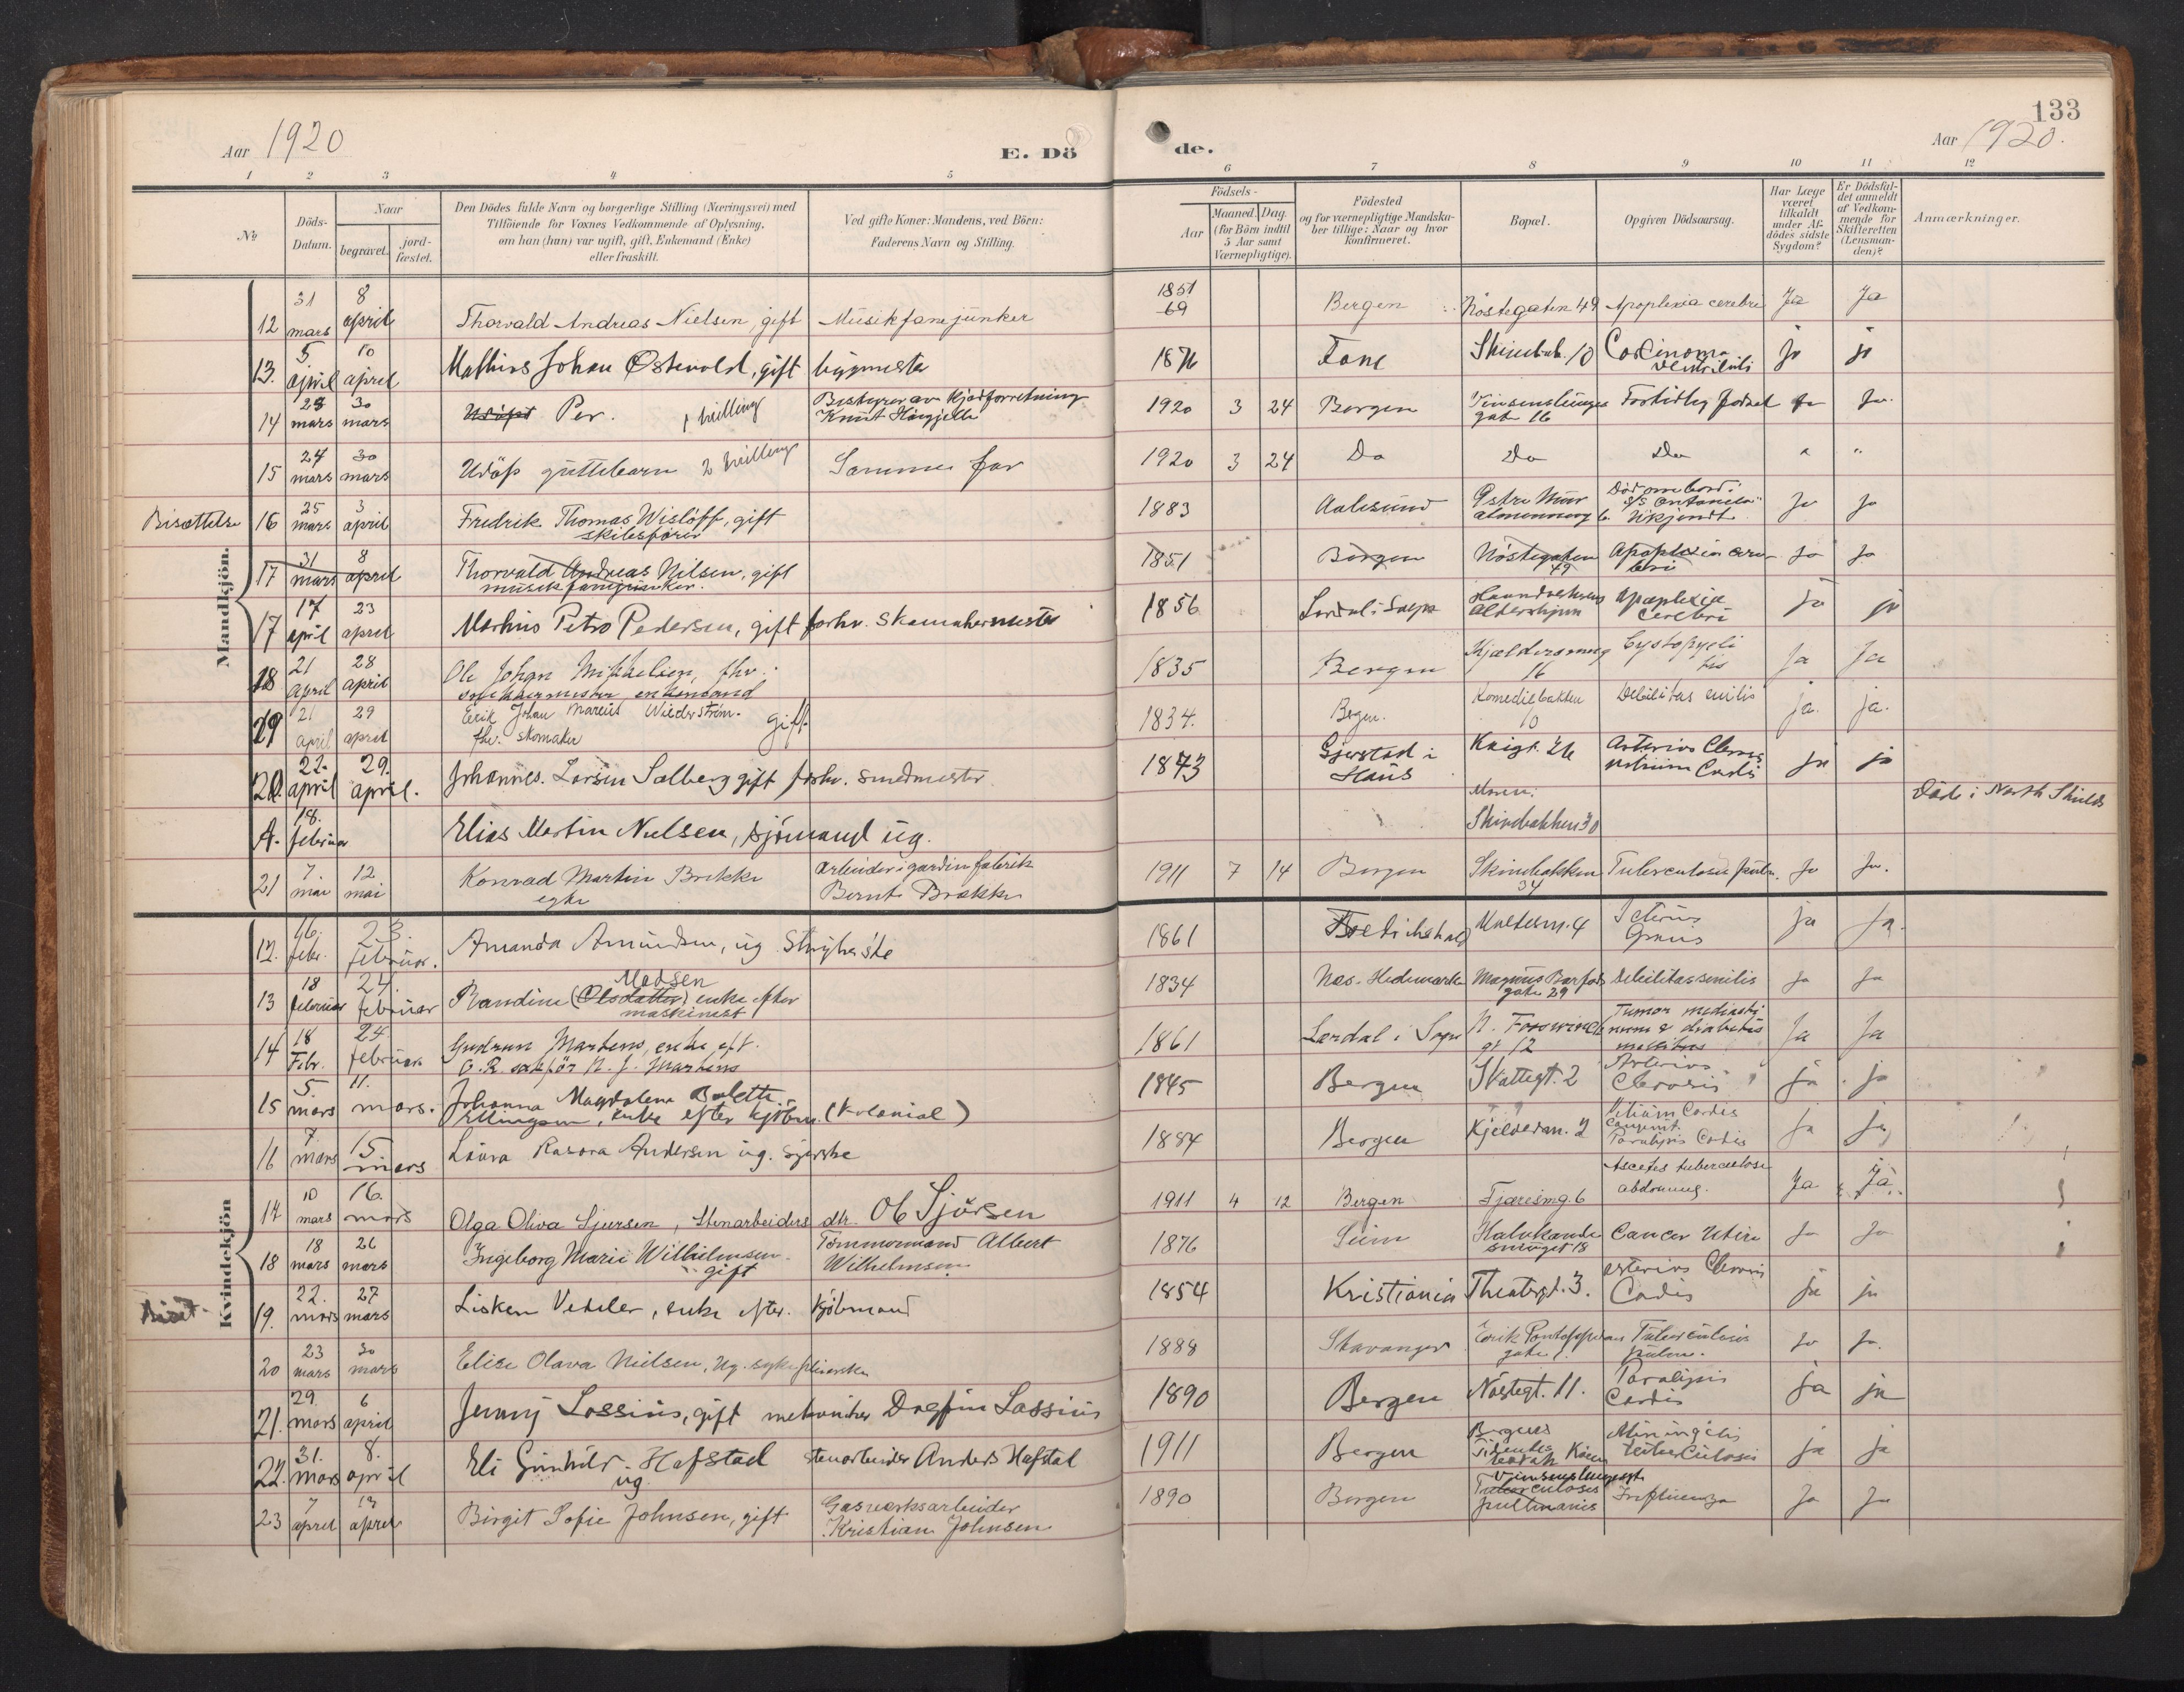 133
Aar 1920
E. Dö de.
Aar 1920.
1 2 3 4 5 6 7 8 9 10 11 12
No
Döds-Datum.
Naar
begravet.
jord-fæstet.
Den Dödes fulde Navn og borgerlige Stilling (Næringsvei) med
Tilföiende for Voxnes Vedkommende af Oplysning,
om han (hun) var ugift, gift, Enkemand (Enke)
eller fraskilt.
Ved gifte Koner: Mandens, ved Börn:
Faderens Navn og Stilling.
Födsels-
Aar
Maaned. Dag.
(for Börn indtil
5 Aar samt
Værnepligtige).
Födested
og for værnepligtige Mandska-
ber tillige: Naar og hvor
konfirmeret.
Bopæl.
Opgiven Dödsaarsag.
Har Læge
været
tilkaldt
under Af-
dödes sidste
Sygdom?
Er Dödsfal-
det anmeldt
af Vedkom-
mende for
Skifteretten
(Lensman-
den)?
Anmærkninger.
Mandkjön.
12 31 mars 8 april Thorvald Andreas Nielsen, gift Musikfanejunker 1851 69 Bergen Nöstegaten 49 Apoplexia cerebri Ja Ja
13. 5 april 10 april Mathias Johan Ostevold, gift bygmester 1876 Fane Skinnebak. 10 Carcinoma ventriculi ja ja
14 28 mars 30 mars Udöpt Per. 1 tvilling Bestyrer av Kjödforretning Knut 1920 3 24 Bergen gate 16 Fortidlig födsel ja ja.
15 24 mars 30 mars Udöpt guttebarn 2 tvilling Samme far 1920 3 24 Do Do Do " "
Bisættelse 16 25 mars 3 april Fredrik Thomas Wislöff, gift skibsförer 1883 Aalesund Östre Mur almenning 6. Död ombord i s/s Ukjendt Ja Ja
17 31 mars 8 april Thorvald Andreas Nilsen, gift musikfanejunker. 1851 Bergen Nöstegaten 49 Apoplexia cerebri Ja Ja
17 17 april 23 april Markus Petro Pedersen, gift forhv. Skomakermester 1856 Lerdal i Sogn Haandverkernes Aldershjem Apoplexia Cerebri Ja ja
18 21 april 28 april Ole Johan Mikkelsen, fhv. snekkermester enkemand 1835 Bergen Kjeldersmug 16 Cystopyelitis Ja Ja
19 21 april 29 april Erik Johan Marcus Wiederström. gift. fhv. skomaker 1834. Bergen. Komediebakken 10 Debilitas senilis ja. ja.
20. 22. april 29. april. Johannes Larsen Salberg gift forhv. smedmester 1873 Gjerstad i Haus Krigt. 26 Arterios Clerosis Vitium Cordis ja ja
A. 18. februar Elias Martin Nielsen, sjömand ug. Moren: Skinebakken 30 Döde i North Shields
21 7 mai 12 mai Konrad Martin Brekke egte Arbeider i gardinfabrik Bernt Brekke 1911 7 14 Bergen Skinebakken 34 Tuberculosis pulm. Ja Ja.
Kvindekjön
12. 16. febr. 23. februar. Amanda Amundsen, ug. Strykerske 1861 Fredrikshald 4 Icterus Gravis ja ja.
13 18 februar 24 februar Randine (Olsdatter) Madsen enke efter maskinist 1834 Nes. Hedemarken Magnus Barfots gate 29 Debilitas senilis Ja Ja
14 18 Febr. 24 februar Gudrun Martens, enke eft. O.R. sakför N. J. Martens 1861 Lærdal i Sogn N. gt 12 Tumor mediastinum & diabetes mellitus Ja Ja
15 5. mars 11. mars. Johanna Magdalena Bolette Ellingsen, enke efter kjöbm. (Kolonial) 1845 Bergen Skattegt. 2 Arterios Clerosis ja ja
16 7. mars 15 mars Laura Rasora Andersen ug. syerske 1884 Bergen Kjelderm. 2 Vitium Cordis Congenit. Paralysis Cordis ja ja
17 10 mars 16. mars Olga Oliva Sjursen, Stenarbeiders dtr. Ob Sjursen 1911 4 12 Bergen Tjæresmg. 6 Ascetes tuberculose abdomns. Ja Ja
18 18 mars 26 mars Ingeborg Marie Wilhelmsen gift Tömmermand Albert Wilhelmsen 1876 Halvkande smuget 18 Cancer Uteri Ja Ja
Biset. 19. 22. mars 27 mars Lisken Vedeler, enke efter Kjöbmand 1854 Kristiania Theatergt. 3. Arterios Clerosis Cordis ja ja
20 23 mars 30 mars Elise Olava Nielsen, ug. sykepleierske 1888 Stavanger Erik Pontoppidans gate Tuberculosis pulm. Ja Ja.
21. 29. mars 6 april Jenny Lossius, gift mekaniker Dagfin Lossius 1890 Bergen Nöstegt. 11. Paralysis Cordis Ja ja
22. 31. mars 8. april Eli Gunhild Hafstad ug. stenarbeider Anders Hafstad 1911 Bergen Bergens Meningitis tuberculosis ja ja
23 7 april 13 april Birgit Sofie Johnsen, gift Gasverksarbeider Kristian Johnsen 1890 Bergen Tuberculosis pullmanies Influenza Ja Ja